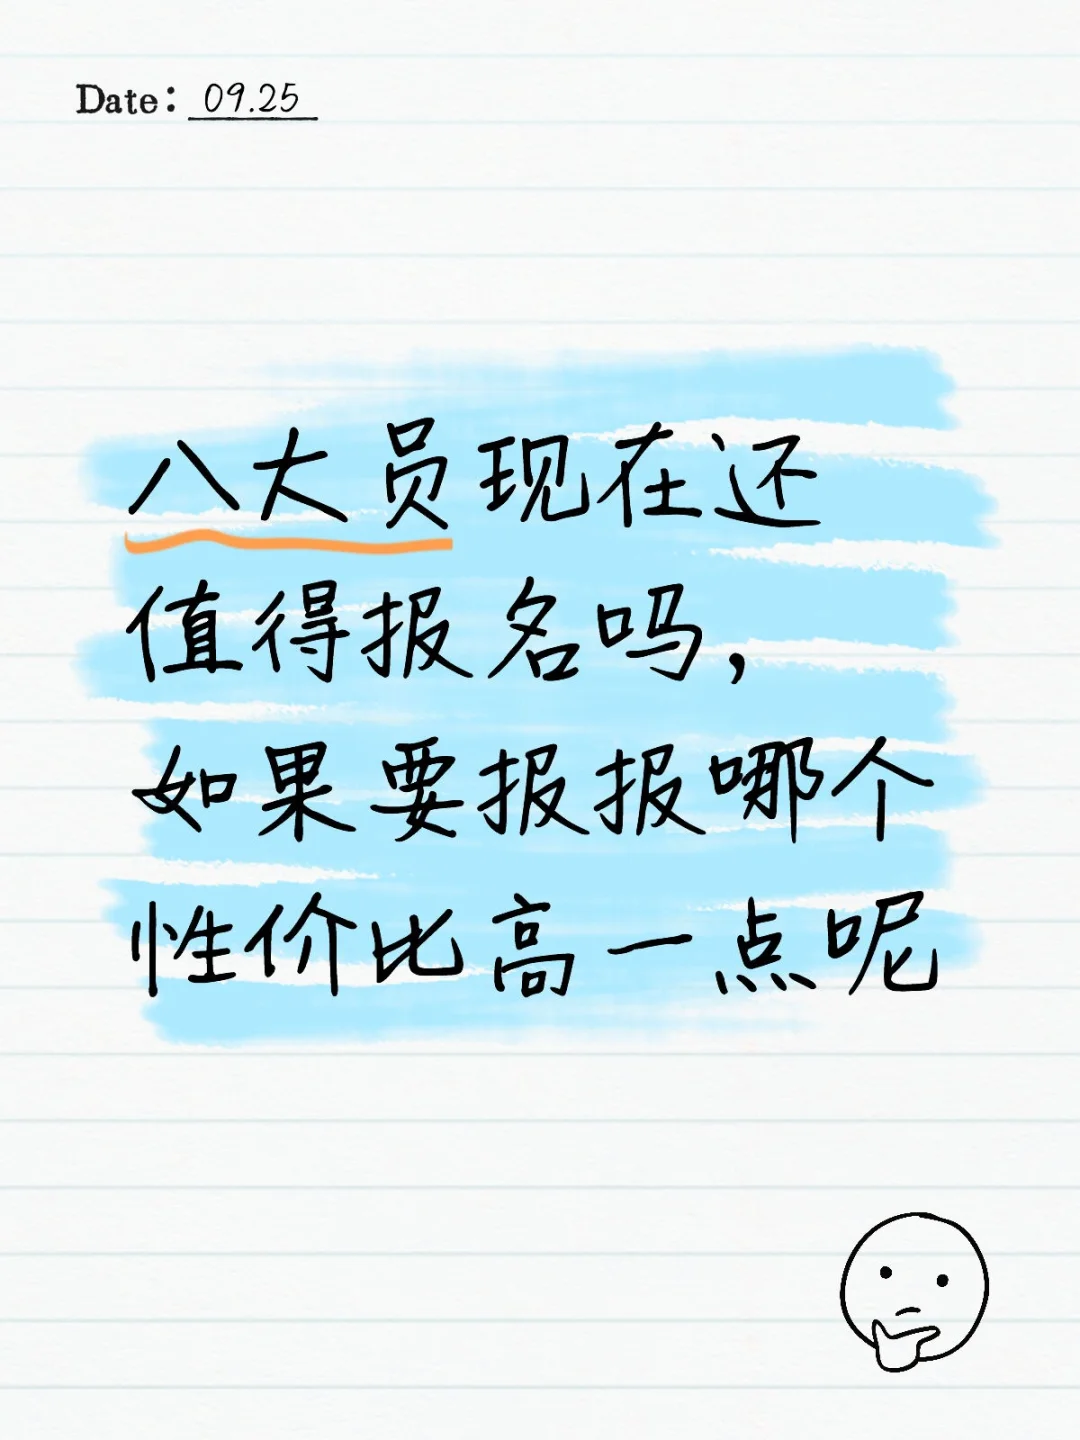 Date: 09.25
八大员现在还
值得报名吗，
如果要报报哪个
性价比高一点呢